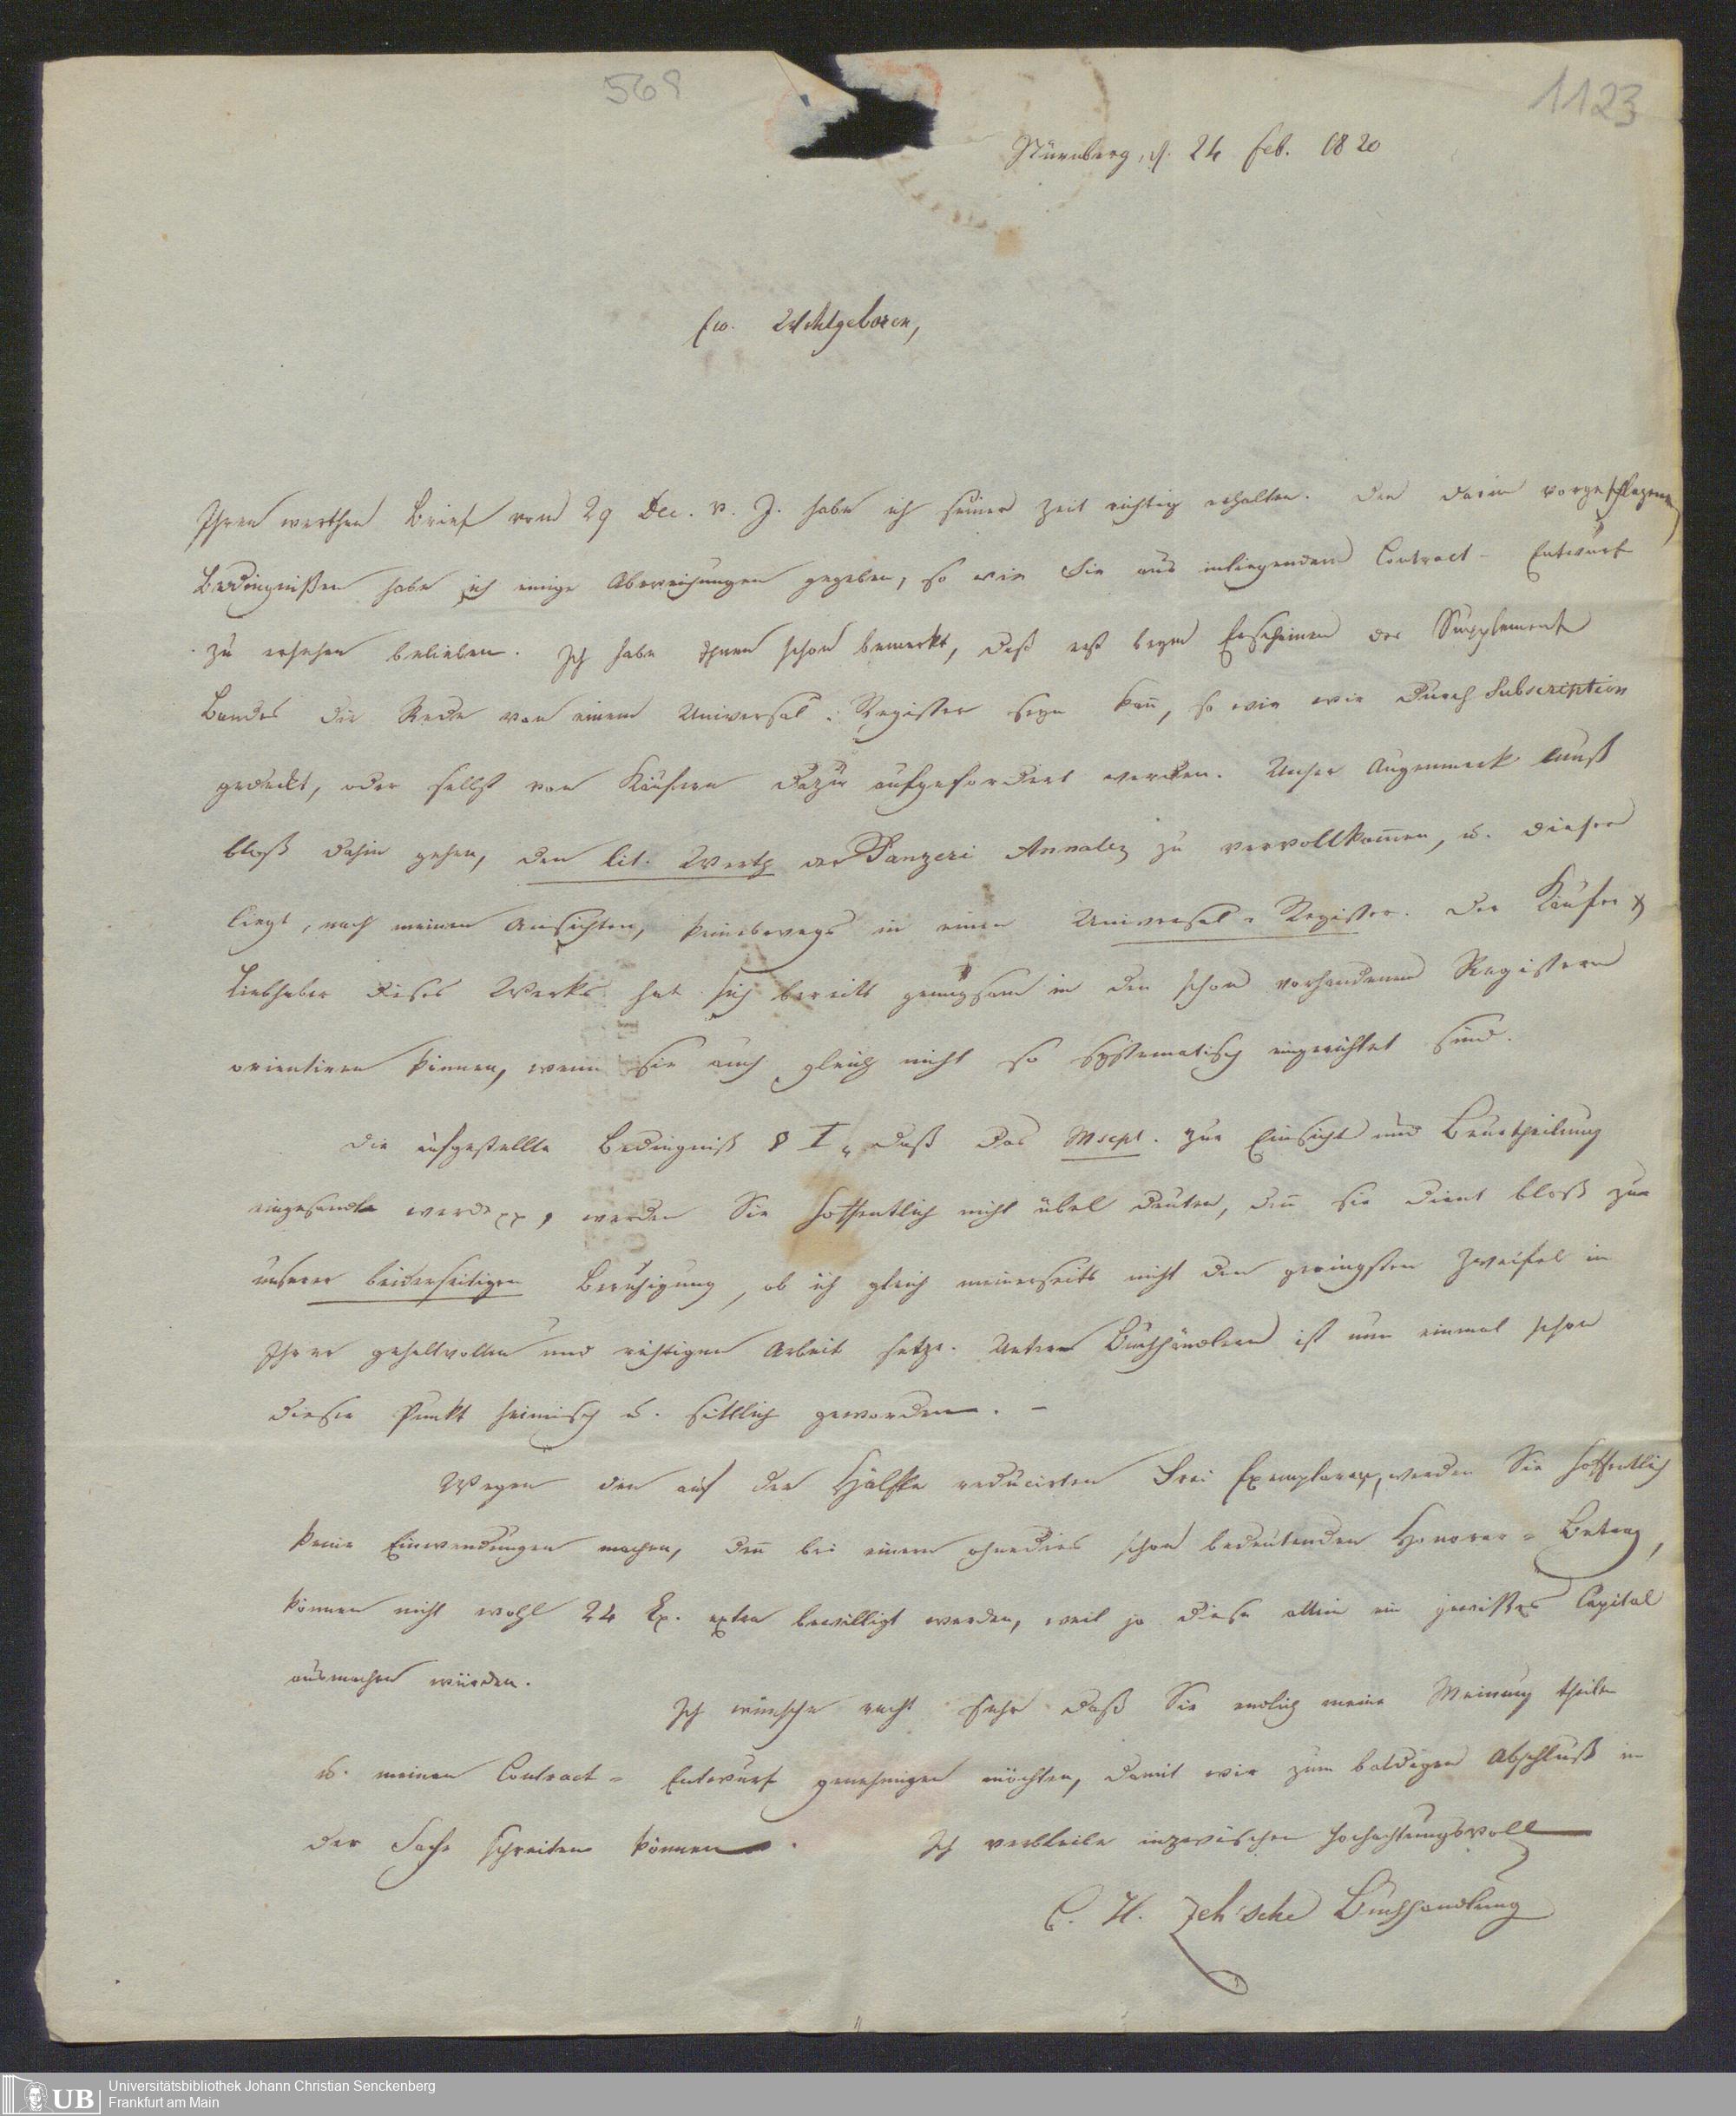 568
1123
Nürnberg, d. 24 Feb. 1820
Ew. Wohlgeboren,
Ihren werthen Brief vom 29 Dec. v. J. habe ich seiner Zeit richtig erhalten. Den darin vorgeschlagenen
Bedingnißen habe ich einige Abweichungen gegeben, so wie Sie aus inliegendem Contract-Entwurf
zu ersehen belieben. Ich habe Ihnen schon bemerkt, daß erst beym Erscheinen des Supplement
Bandes die Rede von einem Universal-Register seyn kañ, so wie wir durch Subscription
gedeckt, oder selbst von Käufern dazu aufgefordert werden. Unser Augenmerk muß
bloß dahin gehen, den lit. Werth der Panzeri Annalen zu vervollkom̃en, u. dieser
liegt, nach meinen Ansichten, keineswegs in einem Universal-Register. Der Käufer &
Liebhaber dieses Werks hat sich bereits genugsam in den schon vorhandenen Registern
orientiren können, wenn sie auch gleich nicht so systematisch eingerichtet sind.
Die aufgestellte Bedingniß § I „daß das Mscpt. zur Einsicht und Beurtheilung
eingesandt werde pp, werden Sie hoffentlich nicht übel deuten, deñ sie dient bloß zur
unserer beiderseitigen Beruhigung, ob ich gleich meinerseits nicht den geringsten Zweifel in
Ihrer gehaltvollen und richtigen Arbeit setze. Untern Buchhändlern ist nun einmal schon
dieser Punkt heimisch u. sittlich geworden. –
Wegen den auf die Hälfte reducirten Frei Exemplaren, werden Sie hoffentlich
keine Einwendungen machen, deñ bei einem ohnedies schon bedeutenden Honorar-Betrag,
können nicht wohl 24 Ex. extra bewilligt werden, weil ja diese allein ein gewißes Capital
ausmachen würden.
Ich wünsche recht sehr daß Sie endlich meine Meinung theilen
u. meinen Contract-Entwurf genehmigen möchten, damit wir zum baldigen Abschluß in
der Sache schreiten können. Ich verbleibe inzwischen hochachtungsvoll
C. H. Zeh'sche Buchhandlung
UB
Universitätsbibliothek Johann Christian Senckenberg
Frankfurt am Main